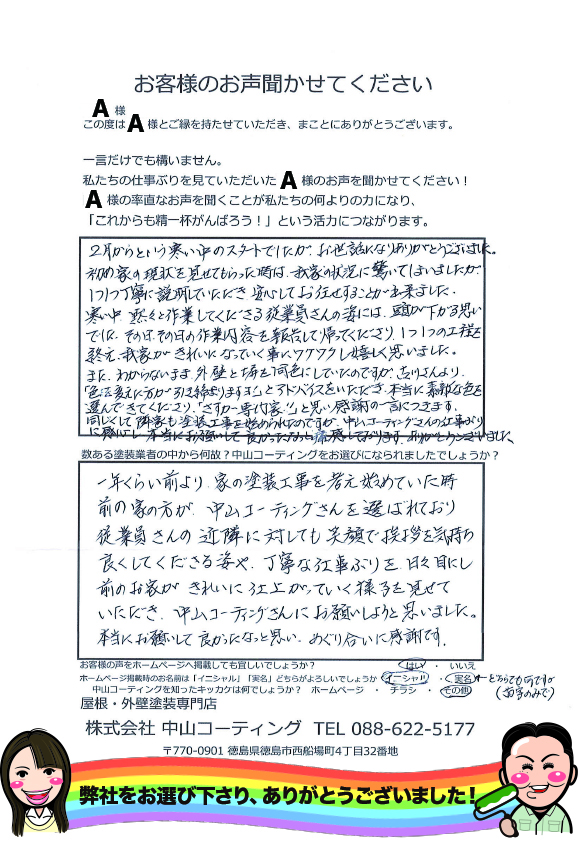 お客様のお声聞かせてください
A 様
この度は A 様とご縁を持たせていただき、まことにありがとうございます。
一言だけでも構いません。
私たちの仕事ぶりを見ていただいた A 様のお声を聞かせてください！
A 様の率直なお声を聞くことが私たちの何よりの力になり、
「これからも精一杯がんばろう！」という活力につながります。
2月からという寒い中のスタートでしたが、お世話になりありがとうございました。
初め家の現状を見せてもらった時は、我家の状況に驚いてしまいましたが、
1つ1つ丁寧に説明していただき、安心してお任せすることが出来ました。
寒い中、黙々と作業してくださる従業員さんの姿には、頭が下がる思い
でした。その日、その日の作業内容を報告して帰ってくださり、1つ1つの工程を
終え、我家がきれいになっていく事に、ワクワクし嬉しく思いました。
また、わからないまま、外壁と塀を同色にしていたのですが、吉川さんより、
「色は変えた方が引き締まりますヨ」とアドバイスをいただき、本当に素敵な色を
選んできてくださり、「さすが専門家！」と思い感謝の一言につきます。
同じくして隣家も塗装工事を始められたのですが、中山コーティングさんの仕事ぶり
に感心し、本当にお願いして良かったなぁと痛感しております。ありがとうございました。
数ある塗装業者の中から何故？中山コーティングをお選びになられましたでしょうか？
一年くらい前より、家の塗装工事を考え始めていた時
前の家の方が、中山コーティングさんを選ばれており
従業員さんの近隣に対しても笑顔で挨拶を気持ち
良くしてくださる姿や、丁寧な仕事ぶりを日々目にし
前のお家がきれいに仕上がっていく様子を見せて
いただき、中山コーティングさんにお願いしようと思いました。
本当にお願いして良かったなっと思い、めぐり合いに感謝です。
お客様の声をホームページへ掲載しても宜しいでしょうか？ はい ・ いいえ
ホームページ掲載時のお名前は「イニシャル」「実名」どちらがよろしいでしょうか イニシャル ・ 実名 ← どちらでも可ですが
中山コーティングを知ったキッカケは何でしょうか？ ホームページ ・ チラシ ・ その他 (苗字のみで)
屋根・外壁塗装専門店
株式会社 中山コーティング TEL 088-622-5177
〒770-0901 徳島県徳島市西船場町4丁目32番地
弊社をお選び下さり、ありがとうございました！